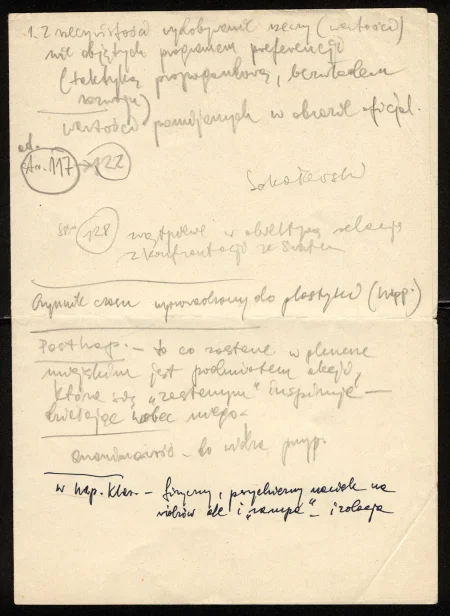 1. Z rzeczywistości wydobywanie rzeczy (wartości)
nie objętych programem preferencji
(taktyką propagandową, bezwładem
rozwoju)
wartości pomijanych w obrazie oficjal.
od
str. 117 → 122
Sokołowski
str 128 wątpliwe w obiektywną relację
z konfrontacji ze światem
czynnik czasu wprowadzony do plastyki (happ.)
Posthap. – to co zastane w plenerze
miejskim jest podmiotem akcji,
która się „zastanym" inspiruje –
wobec niego –
anonimowość – do widza przyp.
w hap. klas. – fizyczny, psychiczny nacisk na
widzów ale i „rampa" – izolacja